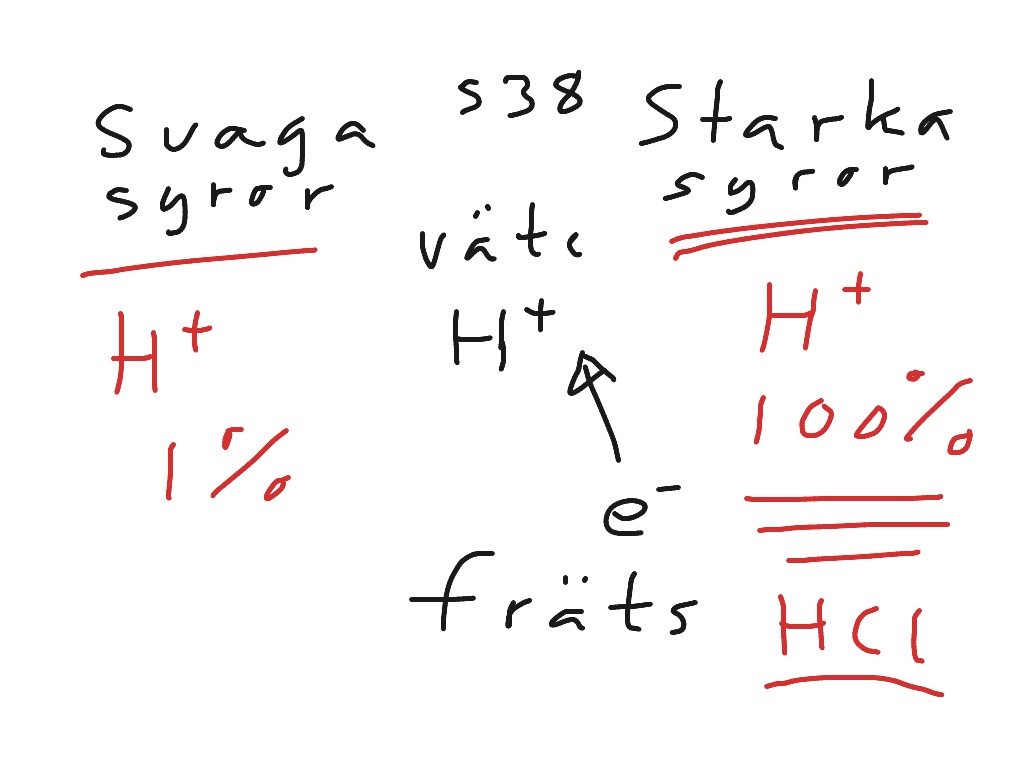 s38
Svaga
syror
H+
1%
väte
H+
e-
fräts
Starka
syror
H+
100%
HCl